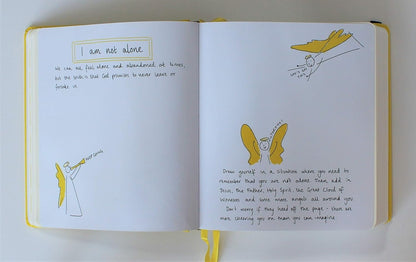 I am not alone
We can all feel alone and abandoned at times,
but the truth is that God promises to never leave or
forsake us
Draw yourself in a situation where you need to
remember that you are not alone. Then, add in
Jesus, the Father, Holy Spirit, the Great Cloud of
Witnesses and some more angels all around you.
Don't worry if they head off the page - there are
more cheering you on than you can imagine